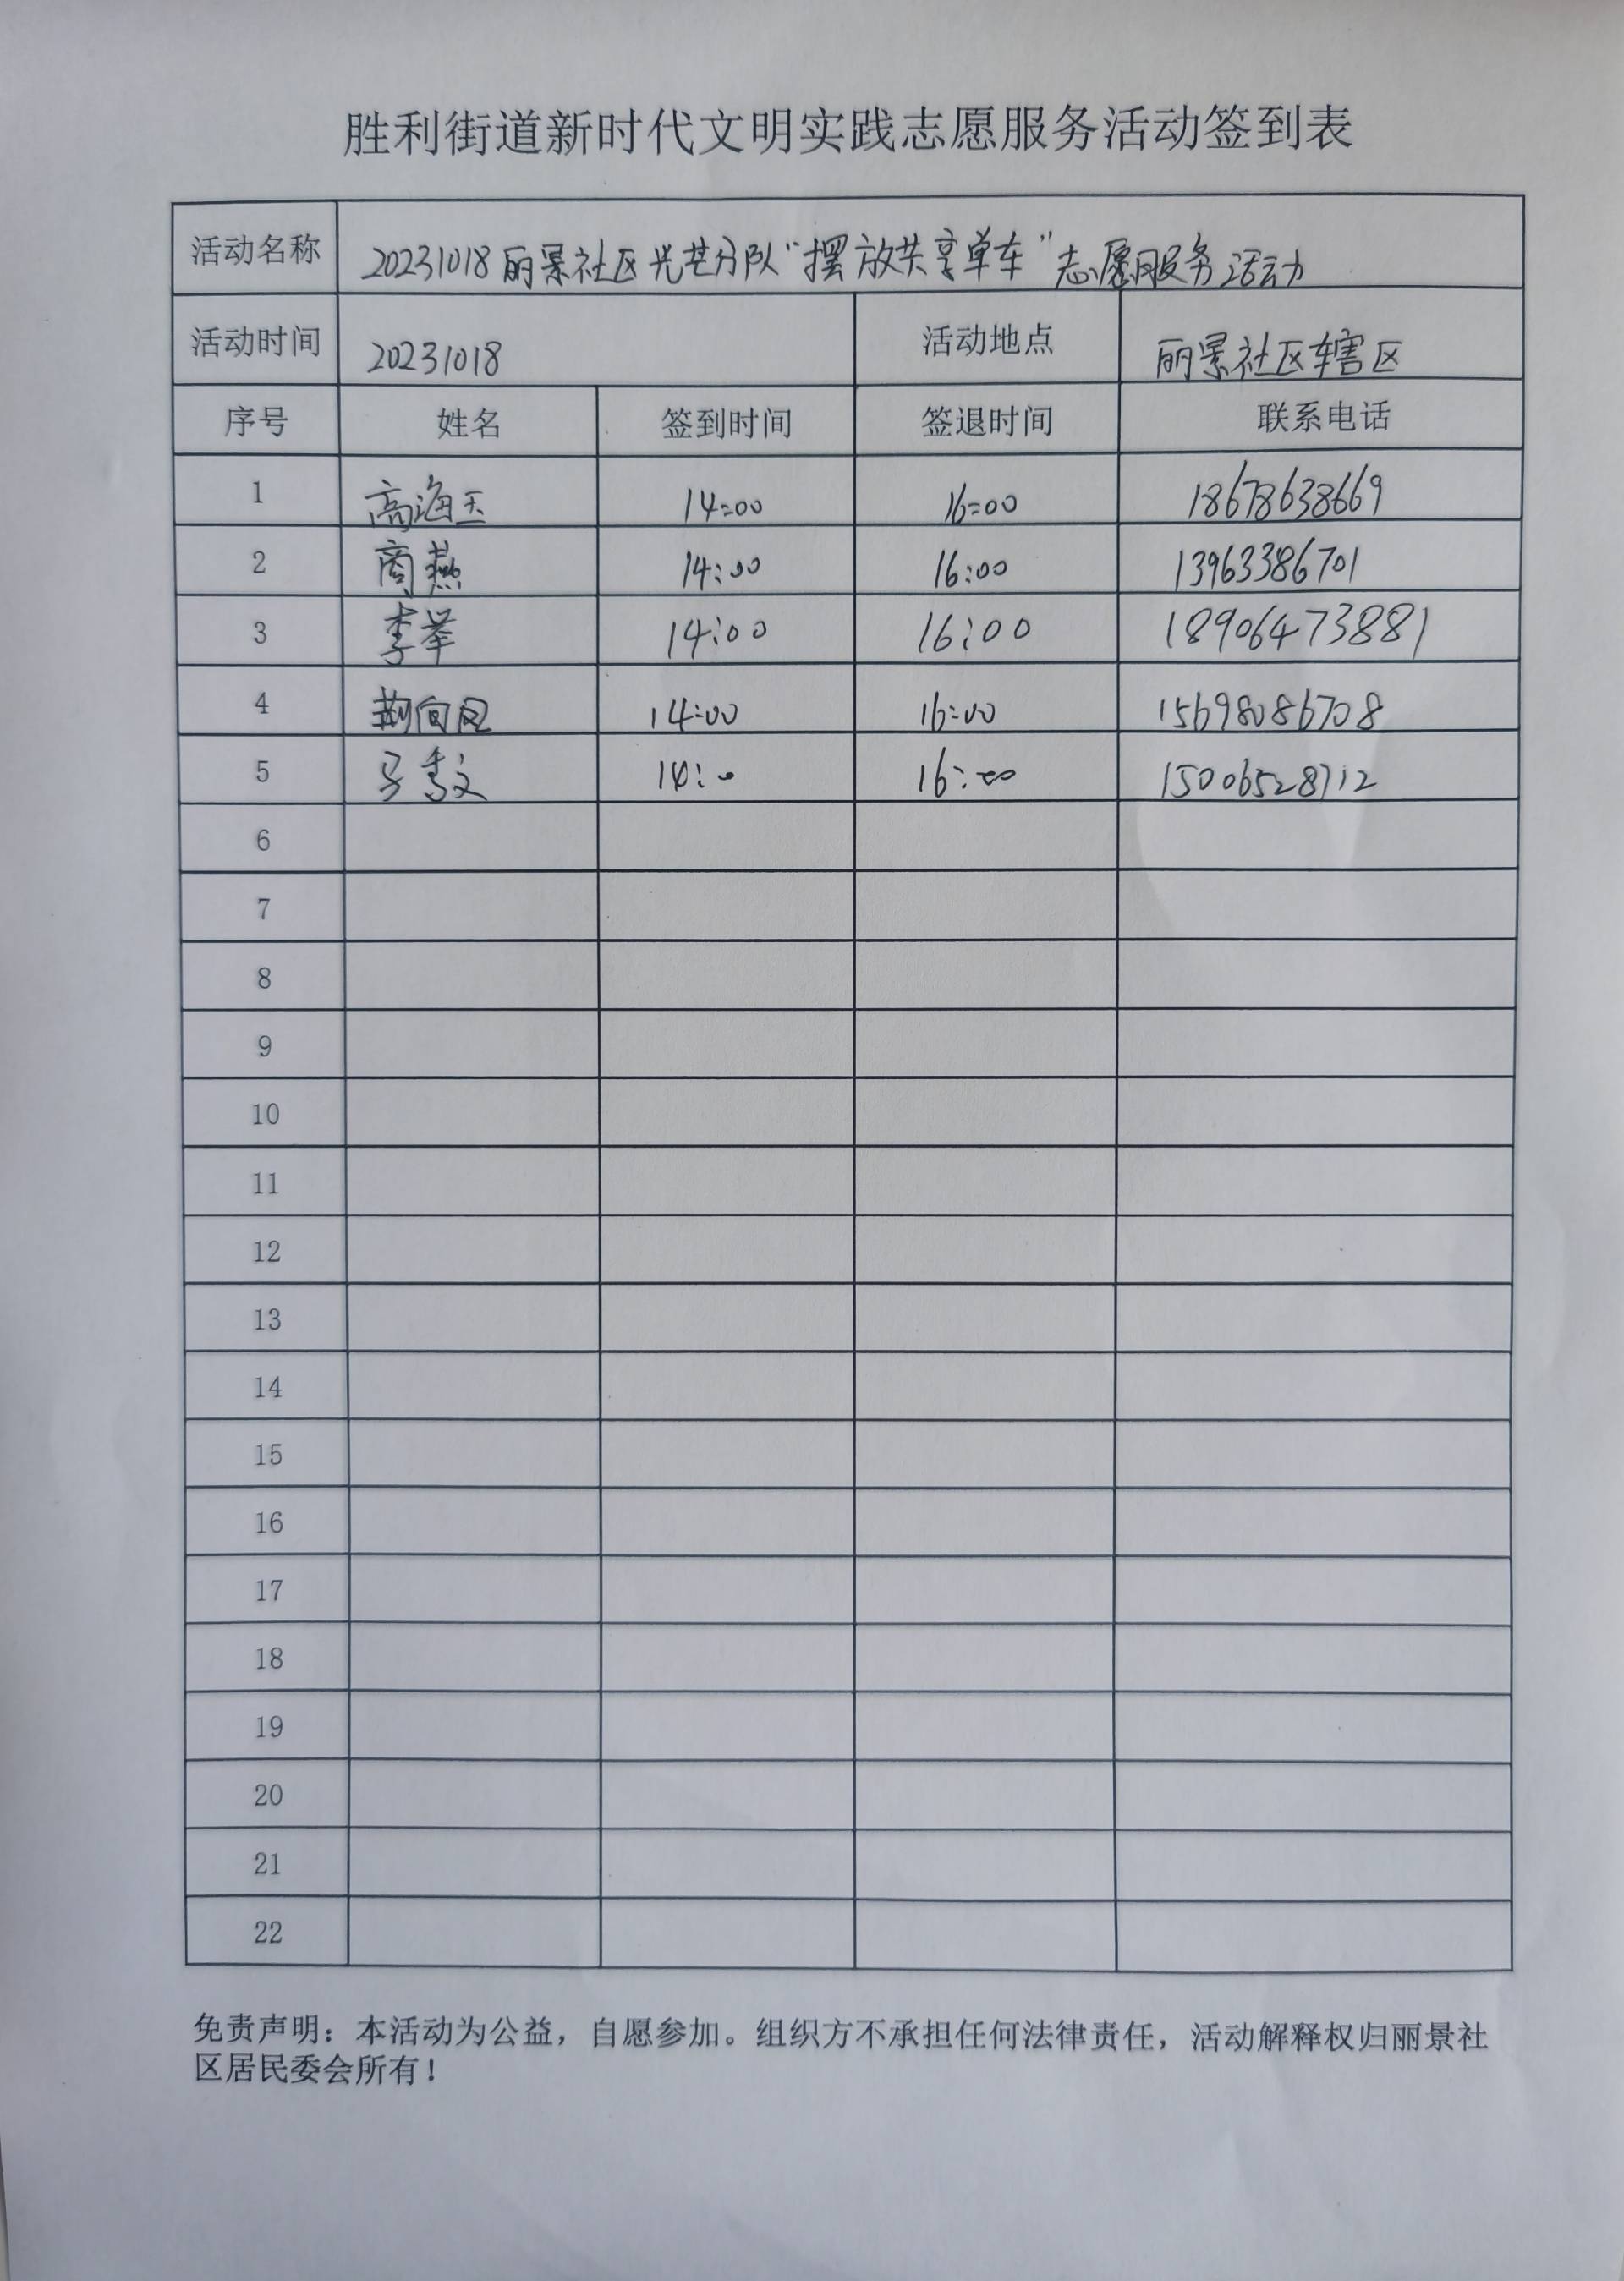 胜利街道新时代文明实践志愿服务活动签到表
活动名称 20231018丽景社区光芒分队“摆放共享单车”志愿服务活动
活动时间 20231018 活动地点 丽景社区辖区
序号 姓名 签到时间 签退时间 联系电话
1 高海玉 14:00 16:00 18678638669
2 商燕 14:00 16:00 13963386701
3 李举 14:00 16:00 18906473881
4 荆向凤 14:00 16:00 15698086708
5 马秀文 14:00 16:00 15006528712
6
7
8
9
10
11
12
13
14
15
16
17
18
19
20
21
22
免责声明：本活动为公益，自愿参加。组织方不承担任何法律责任，活动解释权归丽景社
区居民委会所有！